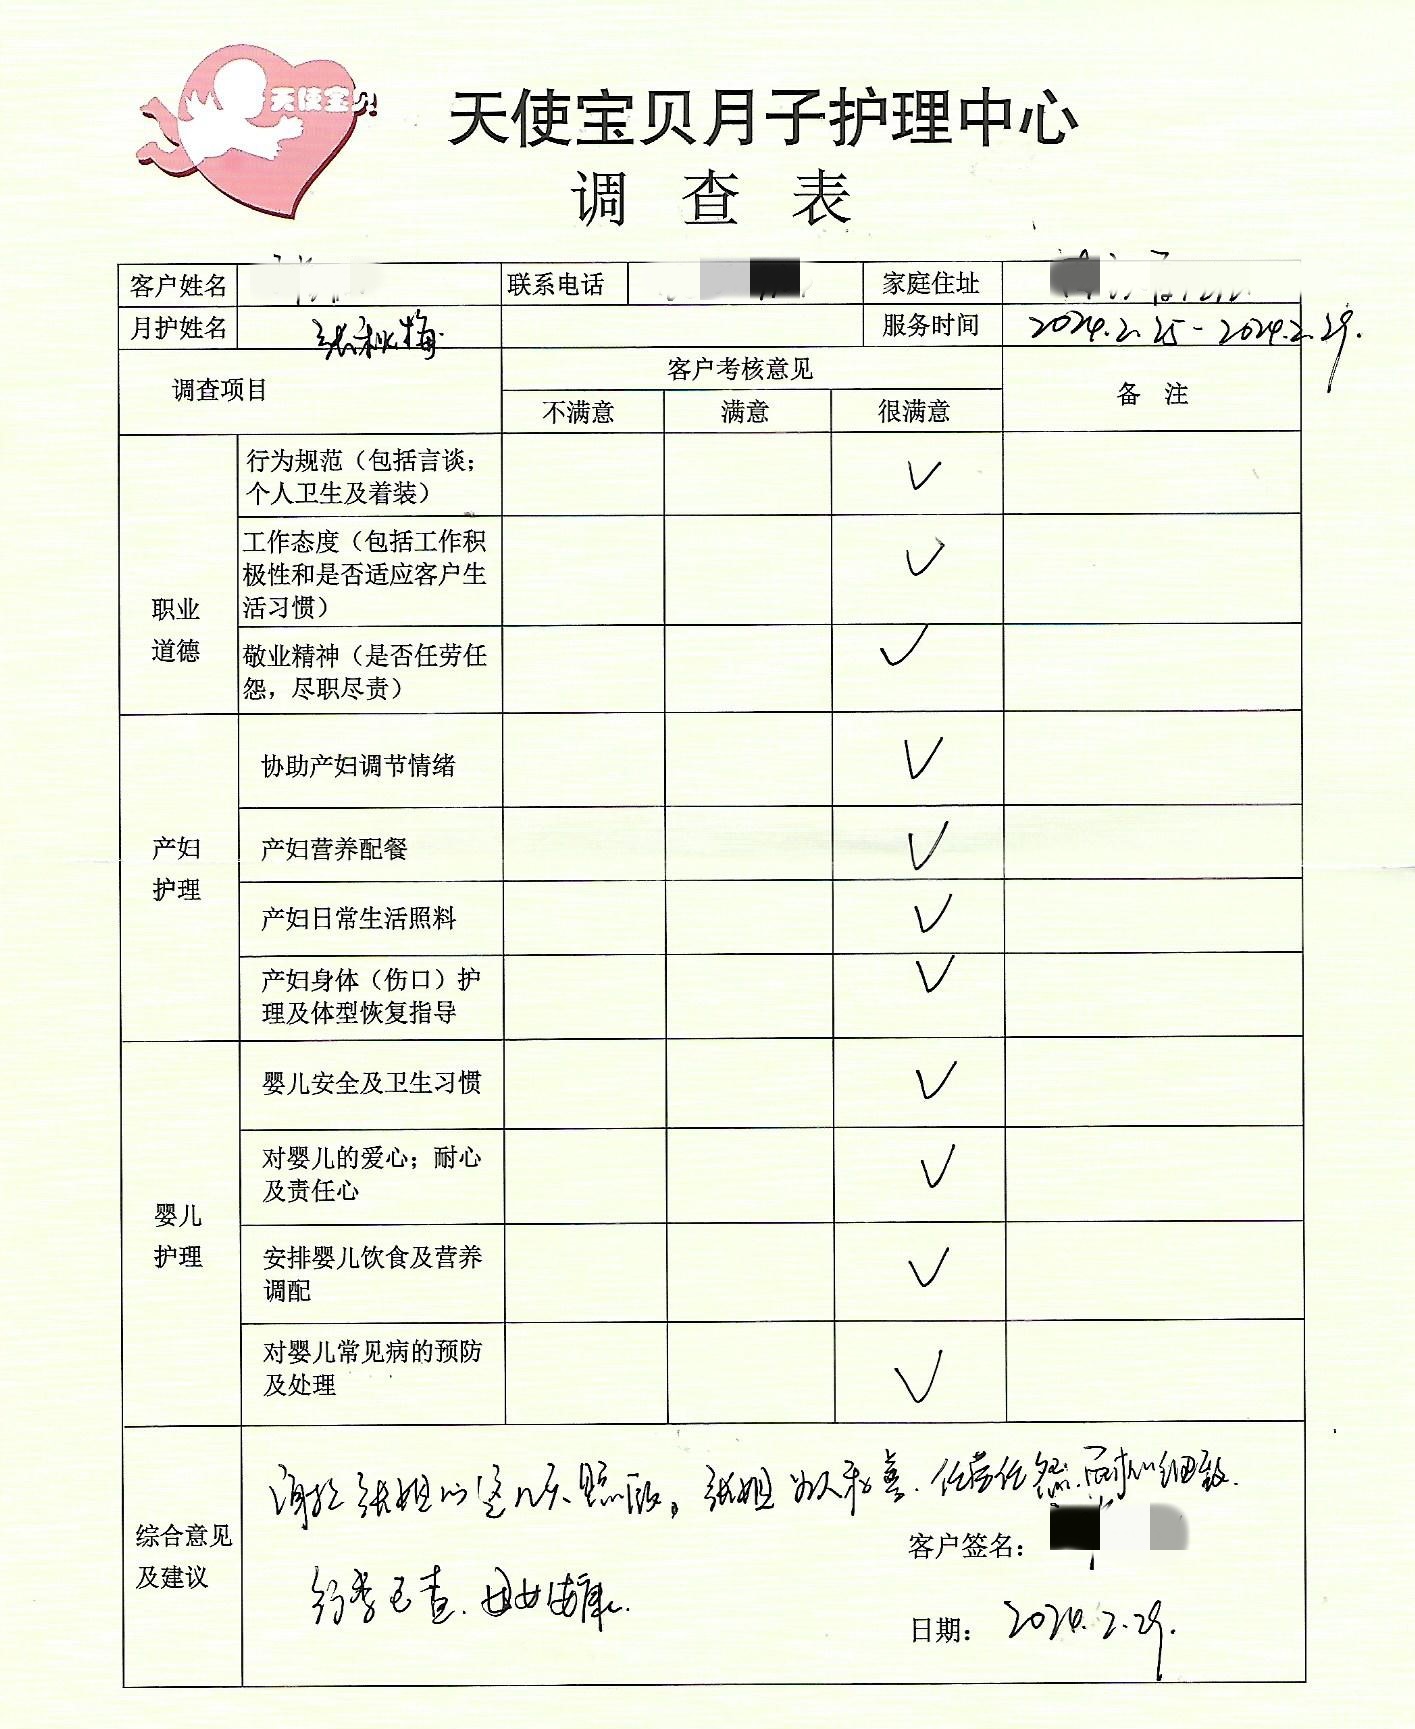 天使宝贝
天使宝贝月子护理中心
调 查 表
客户姓名 联系电话 家庭住址
月护姓名 张秋梅 服务时间 2024.2.25-2024.2.29.
调查项目 客户考核意见 备 注
不满意 满意 很满意
职业
道德
行为规范（包括言谈；
个人卫生及着装） ✓
工作态度（包括工作积
极性和是否适应客户生
活习惯） ✓
敬业精神（是否任劳任
怨，尽职尽责） ✓
产妇
护理
协助产妇调节情绪 ✓
产妇营养配餐 ✓
产妇日常生活照料 ✓
产妇身体（伤口）护
理及体型恢复指导 ✓
婴儿
护理
婴儿安全及卫生习惯 ✓
对婴儿的爱心；耐心
及责任心 ✓
安排婴儿饮食及营养
调配 ✓
对婴儿常见病的预防
及处理 ✓
综合意见
及建议
谢谢张姐的这几天照顾。张姐为人和善.任劳任怨.耐心细致.
客户签名：
行李已查.母女安康.
日期： 2024.2.29.